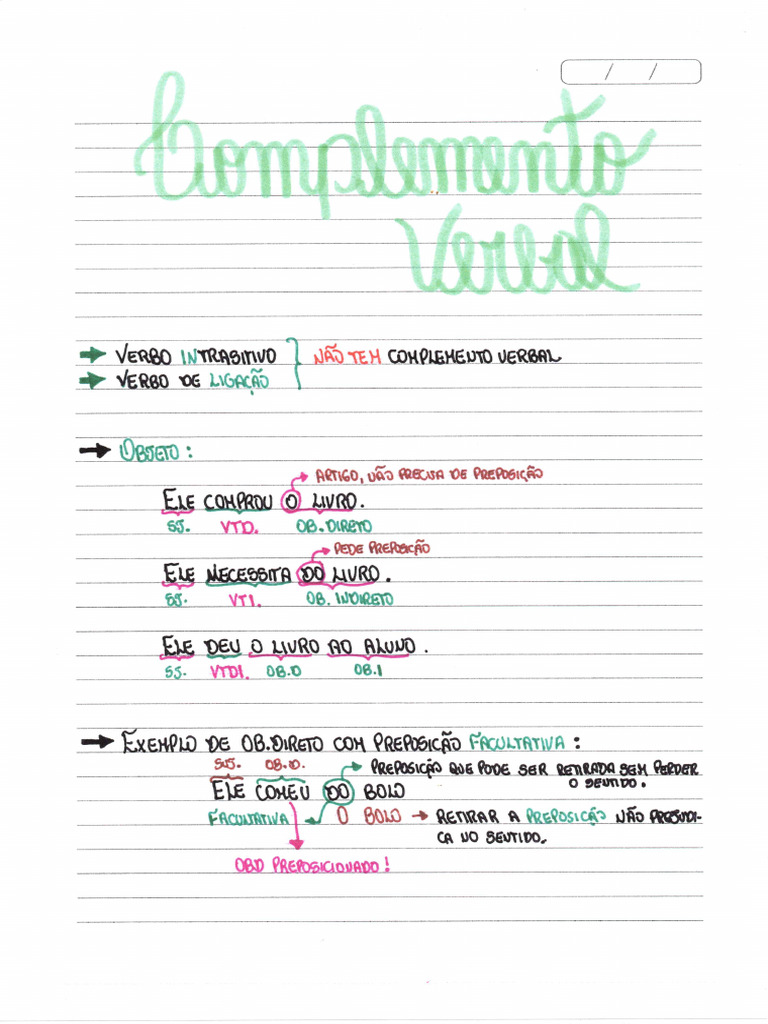 / /
Complemento
Verbal
➔ VERBO INTRASITIVO } NÃO TEM COMPLEMENTO VERBAL
➔ VERBO DE LIGAÇÃO
➔ OBJETO:
ARTIGO, NÃO PRECISA DE PREPOSIÇÃO
ELE COMPROU O LIVRO.
SJ. VTD. OB. DIRETO
PEDE PREPOSIÇÃO
ELE NECESSITA DO LIVRO.
SJ. VTI. OB. INDIRETO
ELE DEU O LIVRO AO ALUNO.
SJ. VTDI. OB.D OB.I
➔ EXEMPLO DE OB.DIRETO COM PREPOSIÇÃO FACULTATIVA:
SUJ. OB.D. PREPOSIÇÃO QUE PODE SER RETIRADA SEM PERDER
O SENTIDO.
ELE COMEU DO BOLO
FACULTATIVA O BOLO → RETIRAR A PREPOSIÇÃO NÃO PREJUDI-
CA NO SENTIDO.
OBD PREPOSICIONADO!